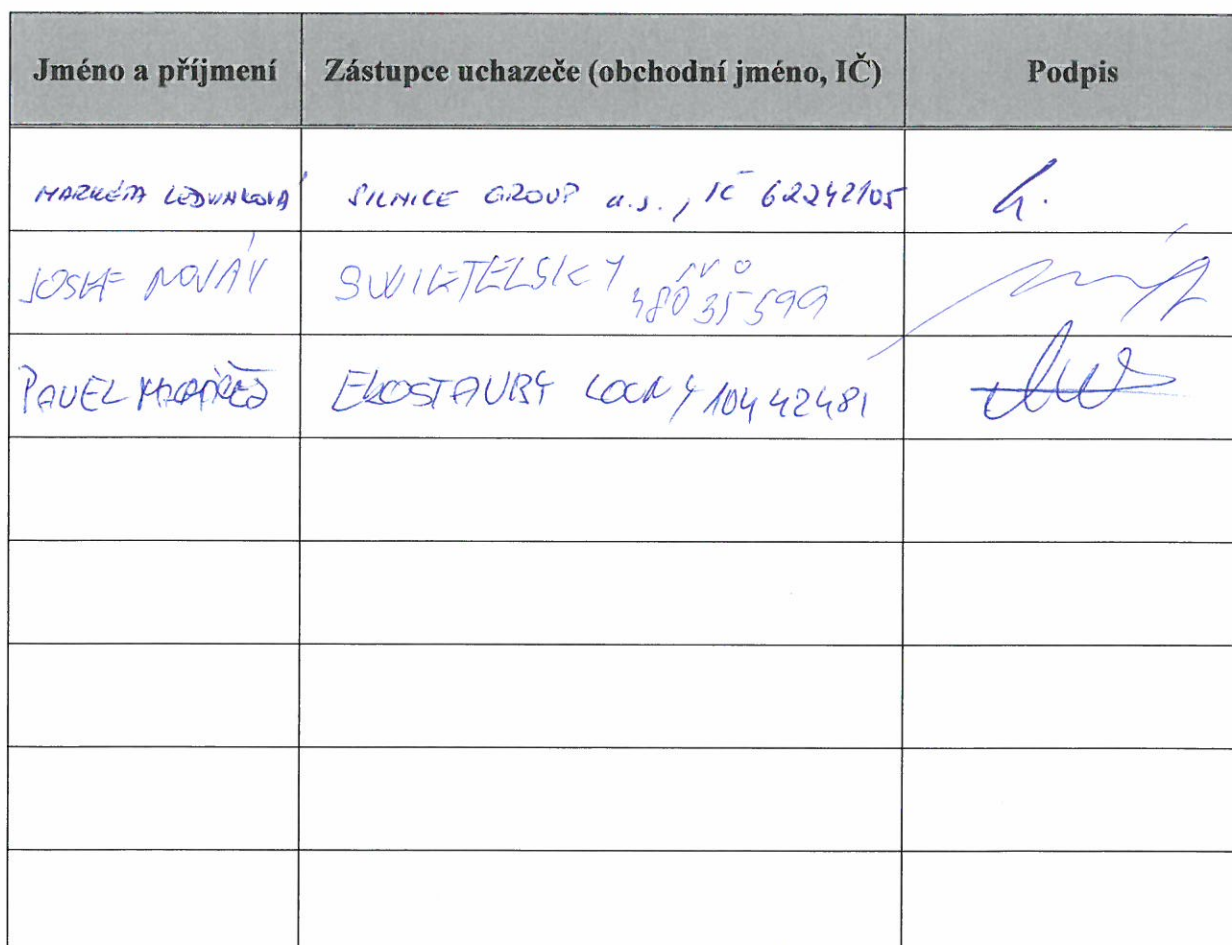 Jméno a příjmení Zástupce uchazeče (obchodní jméno, IČ) Podpis
MARKÉTA SILNICE GROUP a.s., IČ 62242105
JOSEF NOVÁK SWIETELSKY 48035599
PAVEL EKOSTAVBY LOUNY 10442481